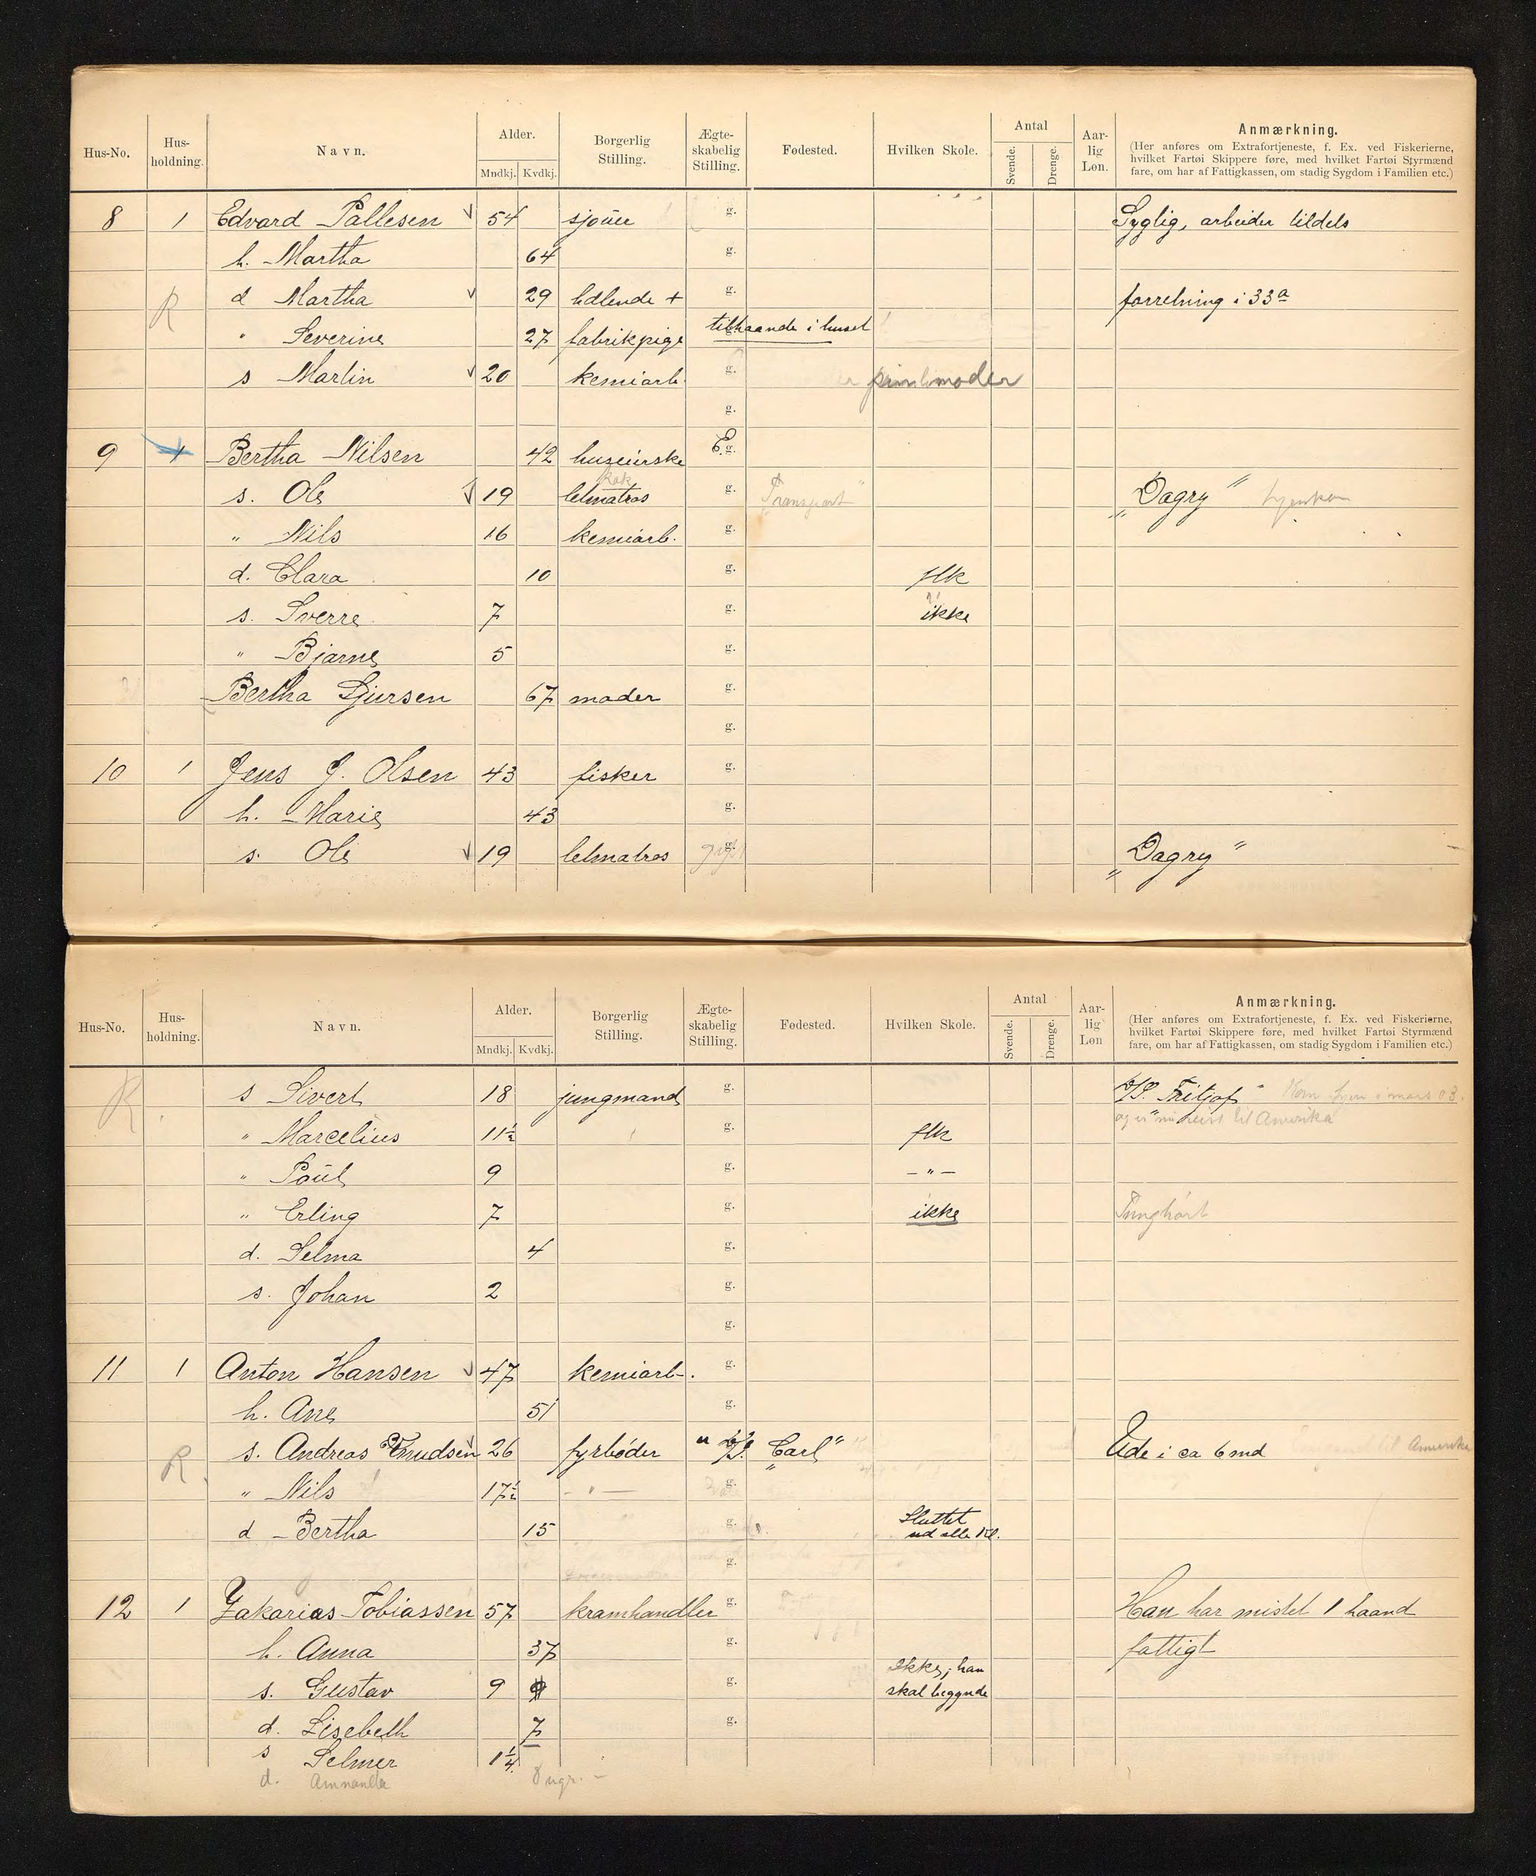 Hus-No. Hus-holdning. Navn. Alder. Mndkj. Kvdkj. Borgerlig Stilling. Ægte-skabelig Stilling. Fødested. Hvilken Skole. Antal Svende. Drenge. Aar-lig Løn. Anmærkning.
(Her anføres om Extrafortjeneste, f. Ex. ved Fiskerierne,
hvilket Fartøi Skippere føre, med hvilket Fartøi Styrmænd
fare, om har af Fattigkassen, om stadig Sygdom i Familien etc.)
8 1 Edvard Pallesen 54 sjouer g. Syglig, arbeider tildels
h. Martha 64 g.
R d Martha 29 hdlende + g. forretning i 33a
" Severine 27 fabrikpige tilhaande i huset
s Martin 20 kemiarb. g.
g.
9 1 Bertha Nilsen 42 huseierske E. g.
s. Ole 19 kok letmatros g. Transport " "Dagry" hjemkom
" Nils 16 kemiarb. g.
d. Clara 10 g. flk
s. Sverre 7 g. ikke
" Bjarne 5 g.
Bertha Sjursen 67 moder g.
g.
10 1 Jens J. Olsen 43 fisker g.
h. Marie 43 g.
s. Ole 19 letmatros g. "Dagry"
Hus-No. Hus-holdning. Navn. Alder. Mndkj. Kvdkj. Borgerlig Stilling. Ægte-skabelig Stilling. Fødested. Hvilken Skole. Antal Svende. Drenge. Aar-lig Løn Anmærkning.
(Her anføres om Extrafortjeneste, f. Ex. ved Fiskerierne,
hvilket Fartøi Skippere føre, med hvilket Fartøi Styrmænd
fare, om har af Fattigkassen, om stadig Sygdom i Familien etc.)
R. s Sivert 18 jungmand g. D/S. "Fritjof" Kom hjem i mars 03.
" Marcelius 11½ g. flk og er nu reist til Amerika
" Paul 9 g. - " -
" Erling 7 g. ikke Tunghørt
d. Selma 4 g.
s. Johan 2 g.
g.
11 1 Anton Hansen 47 kemiarb. g.
h. Ane 51 g.
s. Andreas Knudsen 26 fyrbøder D/S. "Carl" Ude i ca 6 md til Amerika
R. " Nils 17½ - " - g.
d Bertha 15 g. Sluttet ud alle kl.
g.
12 1 Zakarias Tobiassen 57 kramhandler g. Han har mistet 1 haand
h. Anna 37 g. fattigt
s. Gustav 9 g. Ikke; han skal begynde
d. Lisebeth 7 g.
s Selmer 1¼
d. Amnanda 8 ugr. -